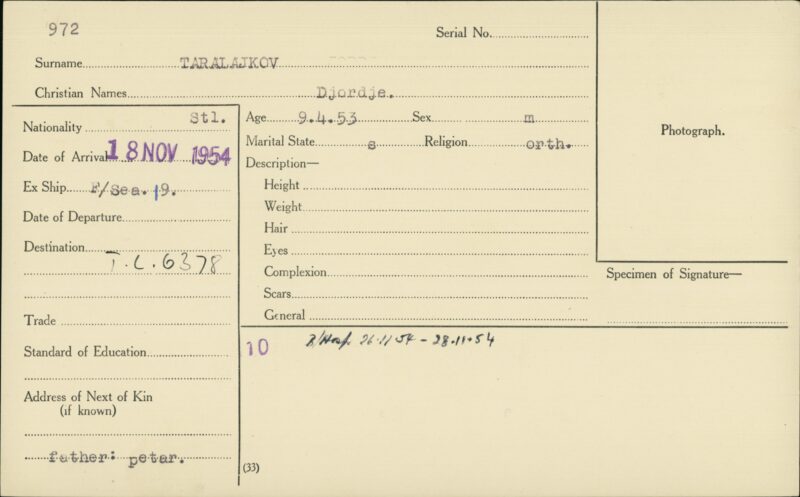 972
Serial No.
Surname TARALAJKOV
Christian Names Djordje.
Nationality Stl.
Date of Arrival 18 NOV 1954
Ex Ship F/Sea. 19.
Date of Departure
Destination
T.C.6378
Trade
Standard of Education
Address of Next of Kin
(if known)
father: petar.
Age 9.4.53 Sex m
Marital State s Religion orth.
Description—
Height
Weight
Hair
Eyes
Complexion
Scars
General
10
26.11.54 - 28.11.54
(33)
Photograph.
Specimen of Signature—